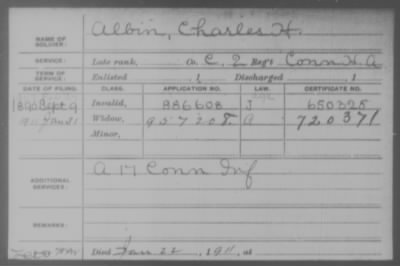 NAME OF SOLDIER: Albin, Charles H.
SERVICE: Late rank, Co. C, 2 Reg't Conn H. A.
TERM OF SERVICE: Enlisted , 1 Discharged , 1
DATE OF FILING. CLASS. APPLICATION NO. LAW. CERTIFICATE NO.
1890 Sept 9 Invalid, 886608 J 650325
1911 Jan 31 Widow, 957205 A 720371
Minor,
ADDITIONAL SERVICES: A 17 Conn Inf
REMARKS:
Died Jan 22, 1911, at